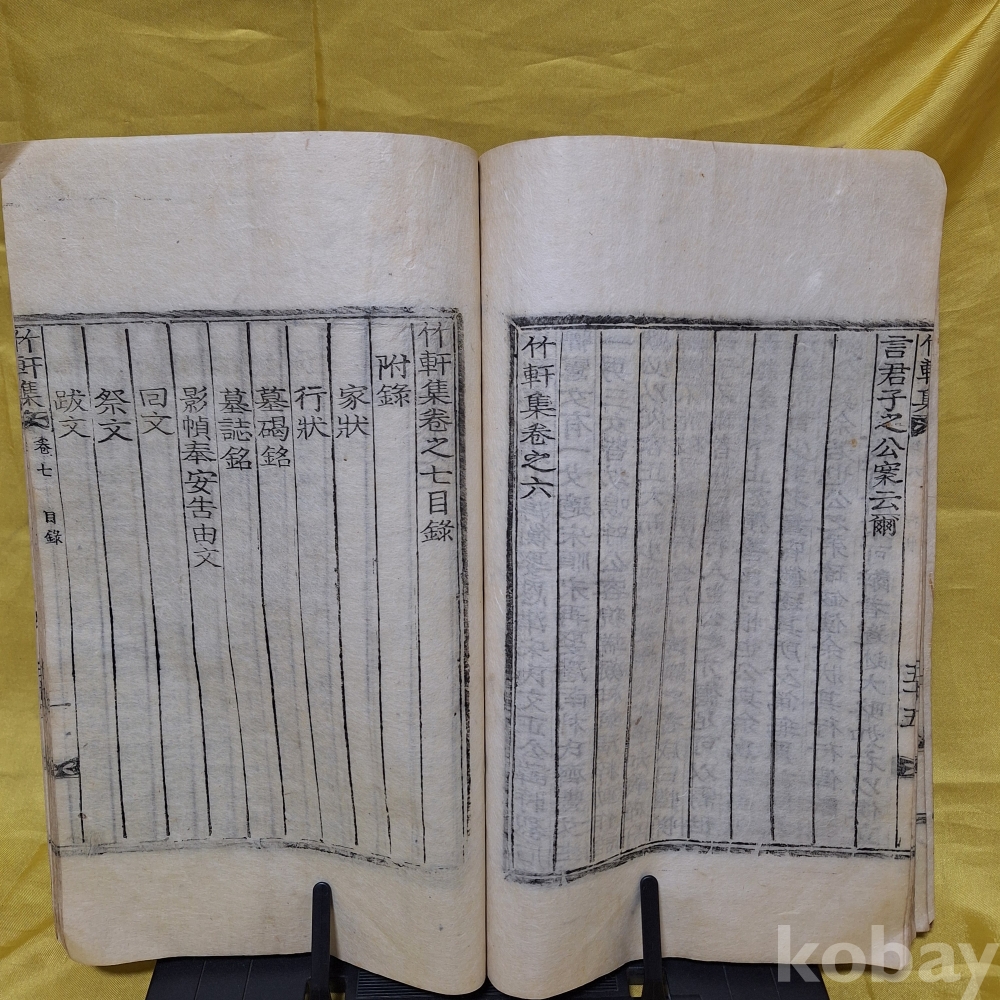 言君子之公案云爾
竹軒集卷之六
竹軒集
五十五
竹軒集卷之七目錄
附錄
家狀
行狀
墓碣銘
墓誌銘
影幀奉安告由文
回文
祭文
跋文
竹軒集
卷七
目錄
一
kobay